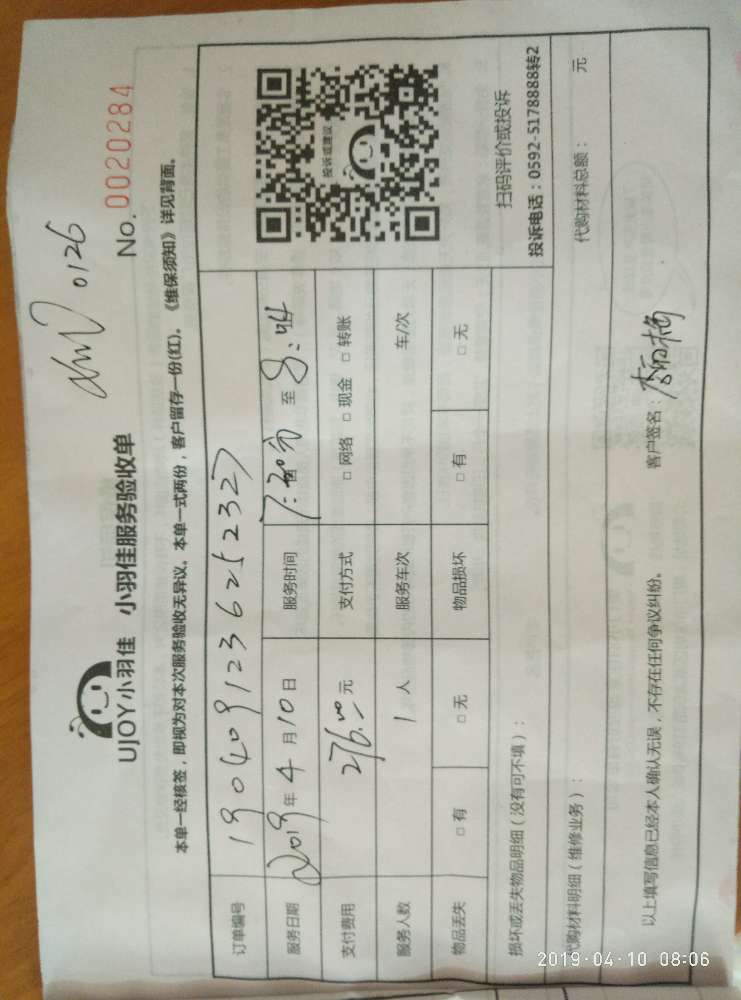 0126
No. 0020284
UJOY小羽佳 小羽佳服务验收单
本单一经核签，即视为对本次服务验收无异议。本单一式两份，客户留存一份(红)。《维保须知》详见背面。
订单编号 1904091236252327
服务日期 2019年4月10日 服务时间 7:30 至 8:44
支付费用 276.00元 支付方式 □网络 □现金 □转账
服务人数 1人 服务车次 车/次
物品丢失 □有 □无 物品损坏 □有 □无
投诉或建议
扫码评价或投诉
投诉电话：0592-5178888转2
损坏或丢失物品明细（没有可不填）：
代购材料明细（维修业务）： 代购材料总额： 元
以上填写信息已经本人确认无误，不存在任何争议纠纷。 客户签名：
2019-04-10 08:06